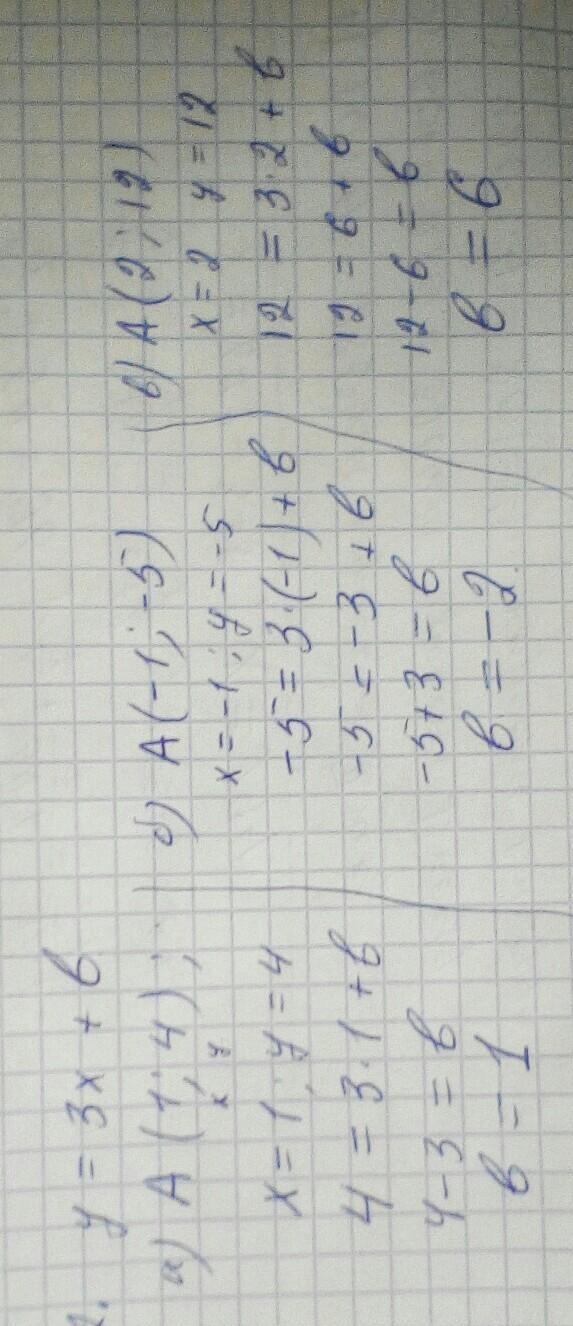 2. y = 3x + b
а) A(1; 4);
x y
x = 1; y = 4
4 = 3·1 + b
4-3 = b
b = 1
б) A(-1; -5)
x = -1; y = -5
-5 = 3·(-1) + b
-5 = -3 + b
-5+3 = b
b = -2
в) A(2; 12)
x = 2 y = 12
12 = 3·2 + b
12 = 6 + b
12-6 = b
b = 6